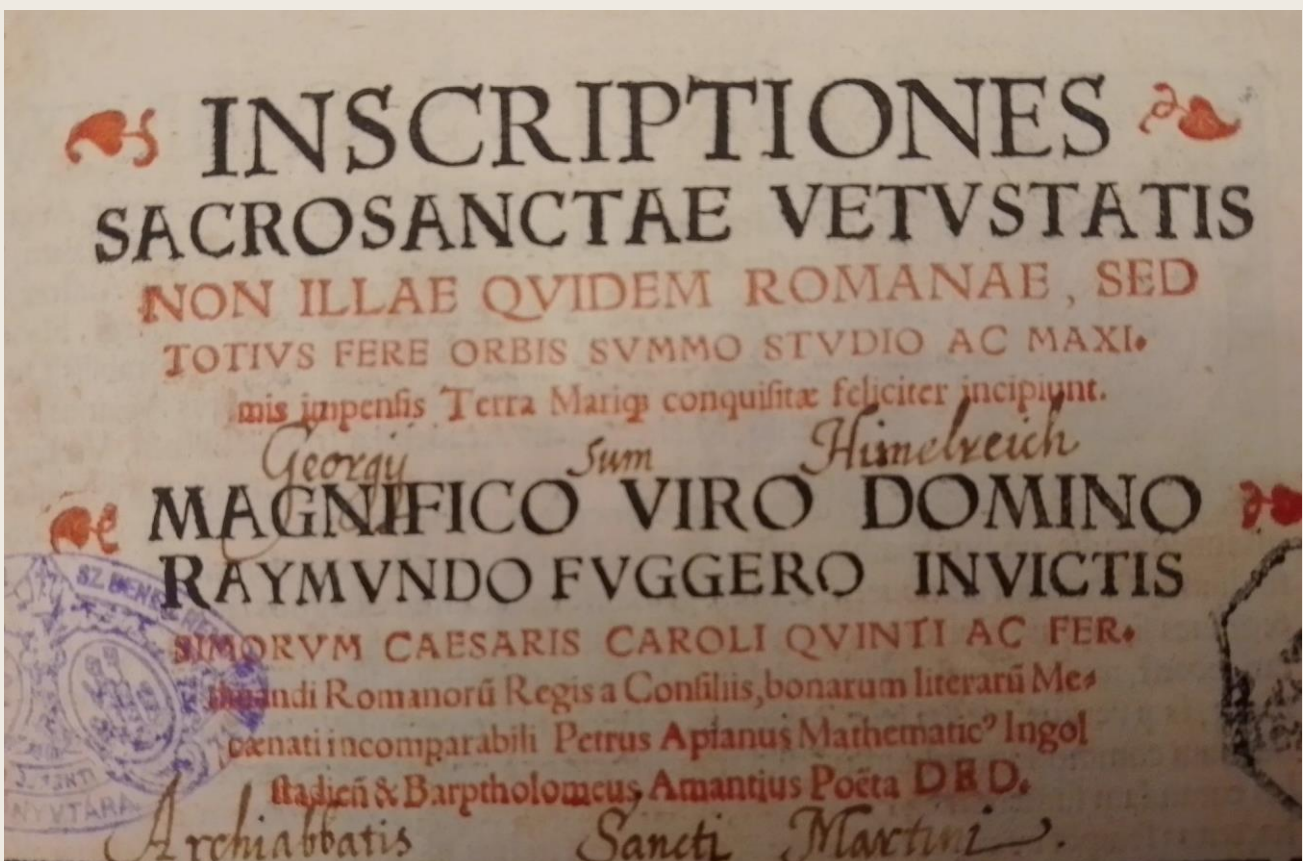 INSCRIPTIONES
SACROSANCTAE VETVSTATIS
NON ILLAE QVIDEM ROMANAE, SED
TOTIVS FERE ORBIS SVMMO STVDIO AC MAXI-
mis impensis Terra Mariq; conquisitæ feliciter incipiunt.
Georgij sum Himelreich
MAGNIFICO VIRO DOMINO
RAYMVNDO FVGGERO INVICTIS
SIMORVM CAESARIS CAROLI QVINTI AC FER-
dinandi Romanorũ Regis a Consiliis, bonarum literarũ Me-
cænati incomparabili Petrus Apianus Mathematicꝰ Ingol
stadieñ & Barptholomeus Amantius Poëta D E D.
Archiabbatis Sancti Martini
SZ BENE